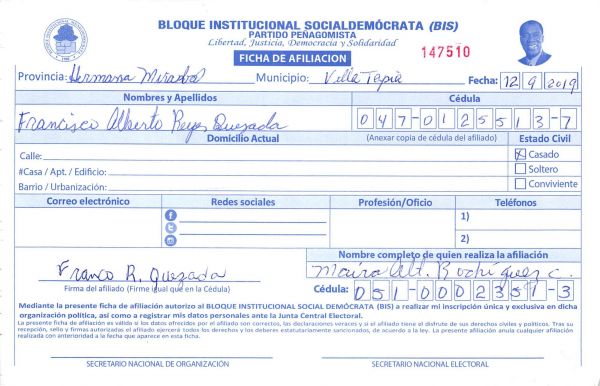 BLOQUE INSTITUCIONAL SOCIALDEMÓCRATA (BIS)
PARTIDO PEÑAGOMISTA
Libertad, Justicia, Democracia y Solidaridad
147510
FICHA DE AFILIACION
Provincia: Hermana Mirabal Municipio: Villa Tapia Fecha: 12 9 2019
Nombres y Apellidos Cédula
Francisco Alberto Reyes Quezada 047-0125513-7
Domicilio Actual (Anexar copia de cédula del afiliado) Estado Civil
Calle: X Casado
#Casa / Apt. / Edificio: Soltero
Barrio / Urbanización: Conviviente
Correo electrónico Redes sociales Profesión/Oficio Teléfonos
1)
2)
Nombre completo de quien realiza la afiliación
Franco R. Quezada Maira Alt. Rodríguez c.
Firma del afiliado (Firme igual que en la Cédula) Cédula: 051-0002351-3
Mediante la presente ficha de afiliación autorizo al BLOQUE INSTITUCIONAL SOCIAL DEMÓCRATA (BIS) a realizar mi inscripción única y exclusiva en dicha
organización política, así como a registrar mis datos personales ante la Junta Central Electoral.
La presente ficha de afiliación es válida si los datos ofrecidos por el afiliado son correctos, las declaraciones veraces y si el afiliado tiene el disfrute de sus derechos civiles y políticos. Tras su
recepción, sello y firmas autorizadas el afiliado ejercerá todos los derechos y los deberes estatutariamente sancionados, de acuerdo a la ley. La presente afiliación anula cualquier afiliación
realizada con anterioridad a la fecha que aparece en esta ficha.
SECRETARIO NACIONAL DE ORGANIZACIÓN SECRETARIO NACIONAL ELECTORAL